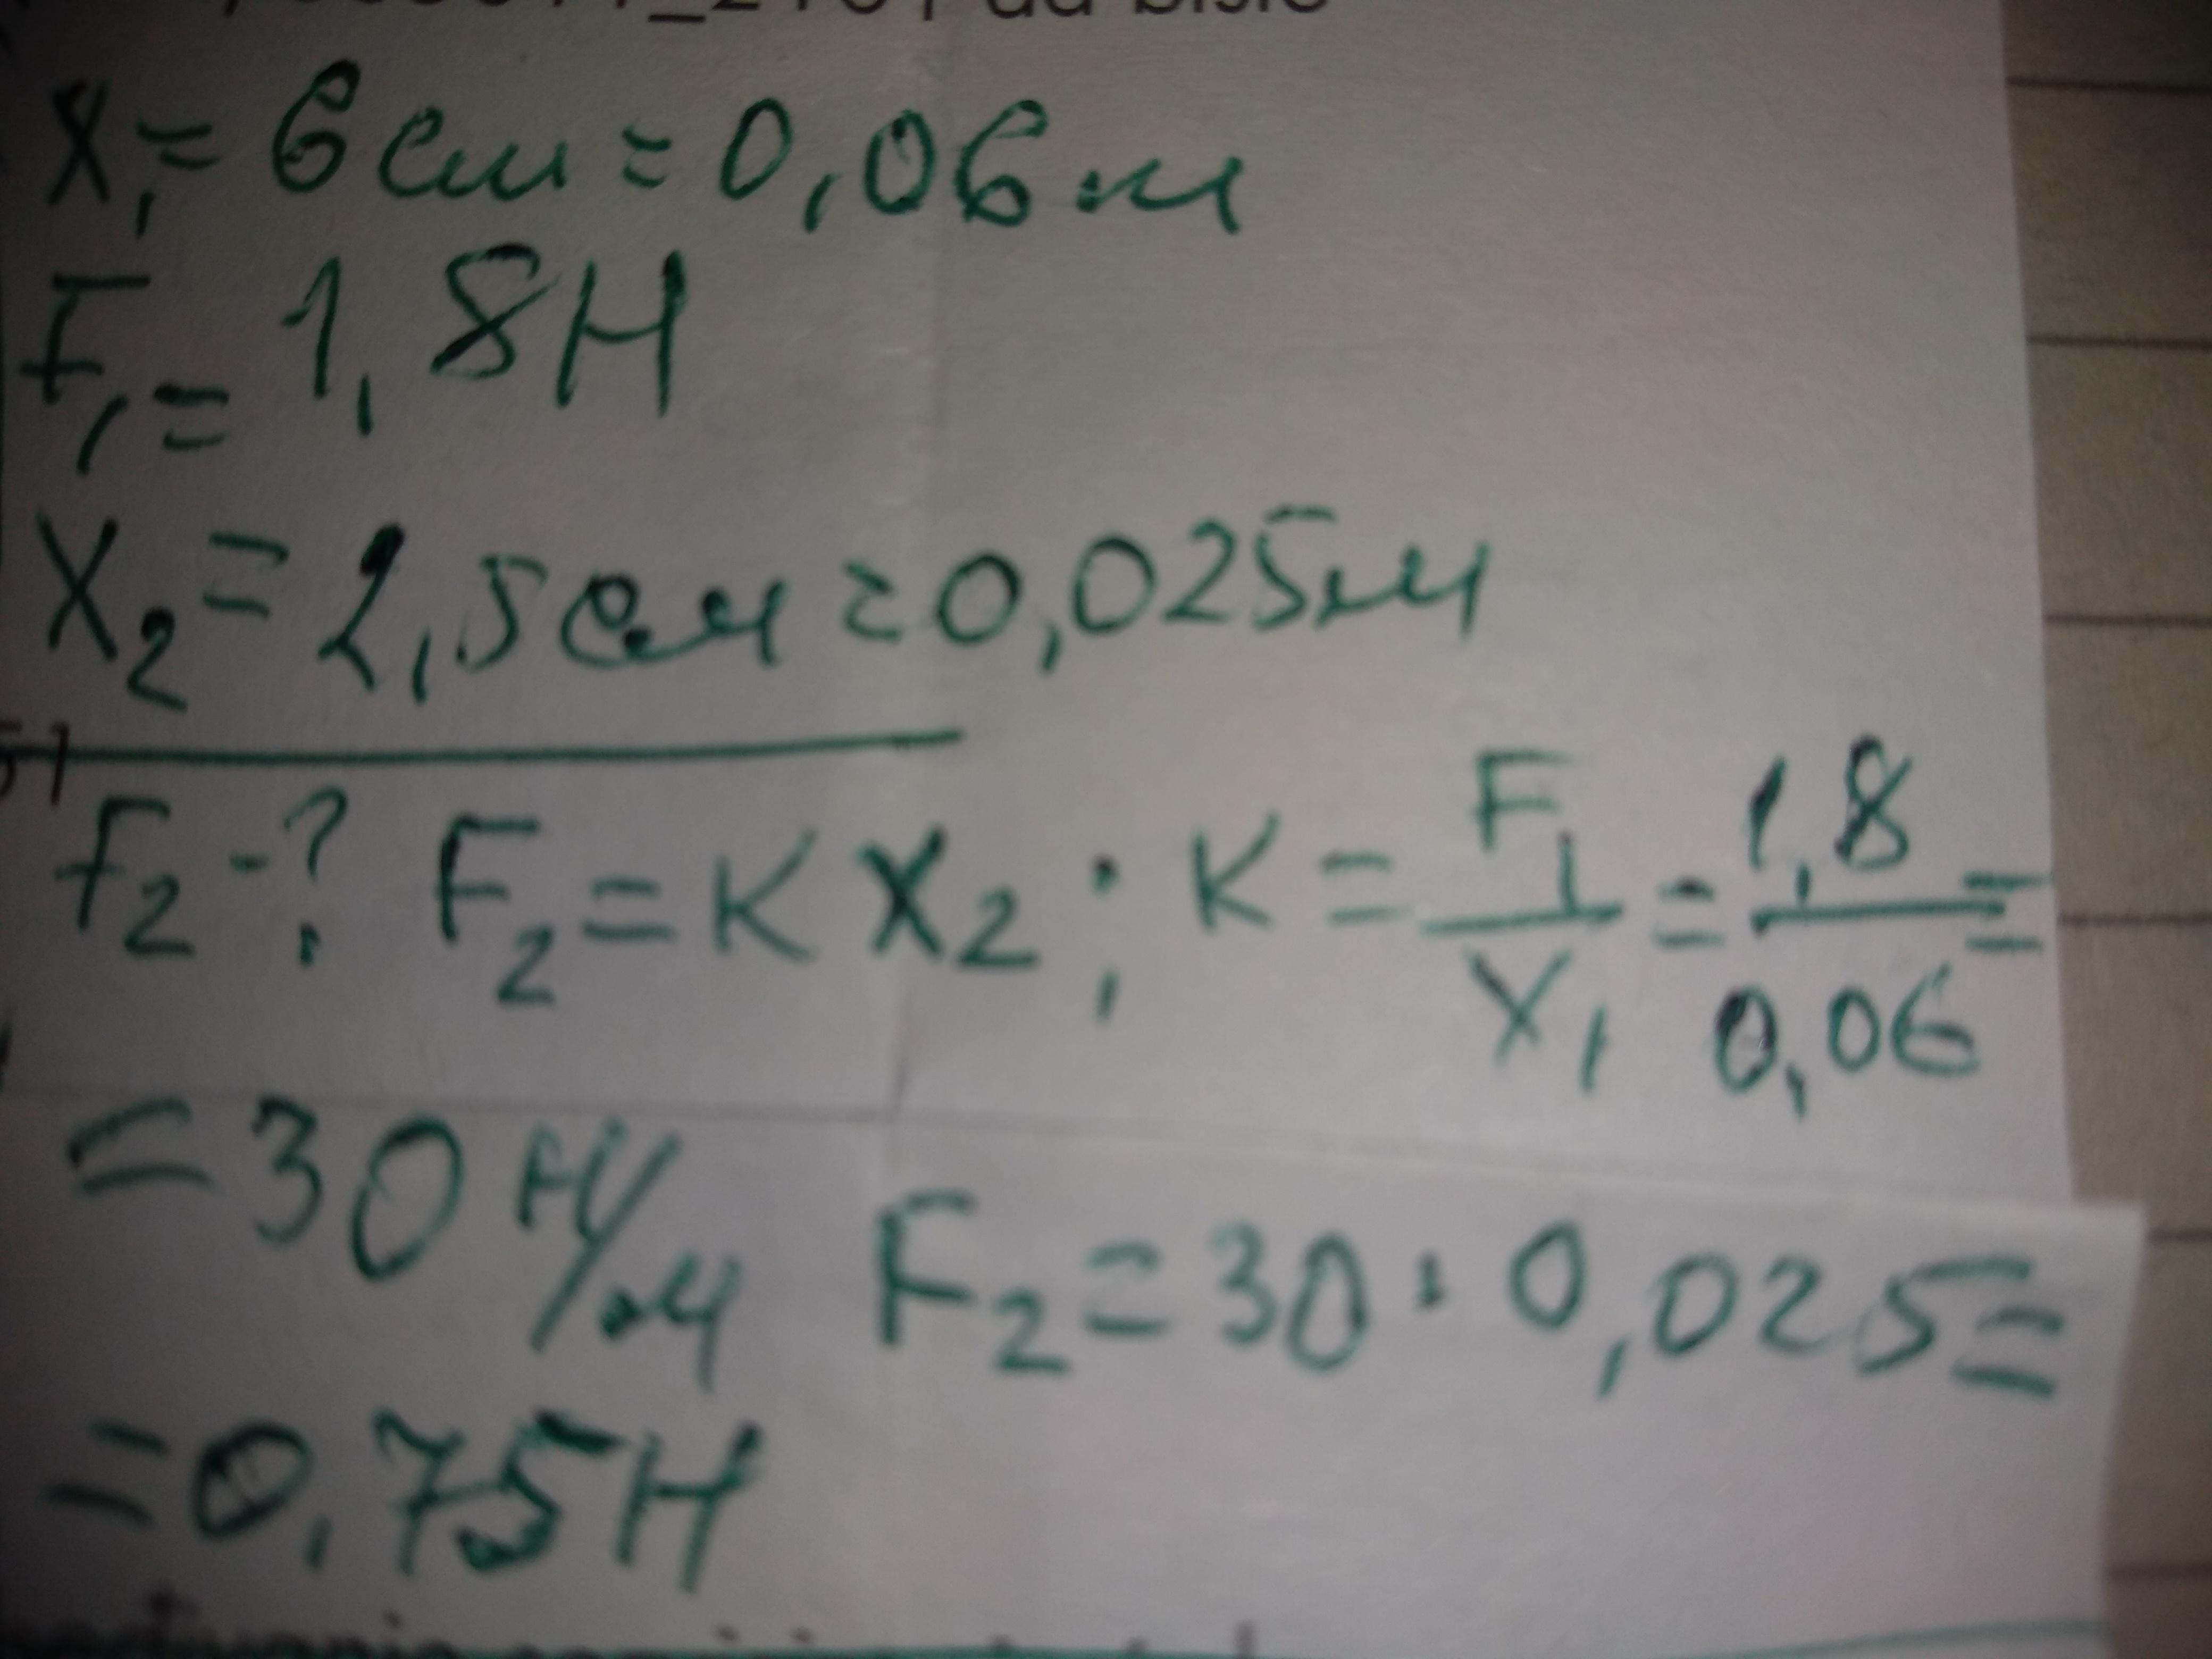 X₁ = 6 см = 0,06 м
F₁ = 1,8 Н
X₂ = 2,5 см = 0,025 м
F₂ - ? F₂ = K X₂ ; K = F₁/X₁ = 1,8/0,06 =
= 30 Н/м F₂ = 30 · 0,025 =
= 0,75 Н